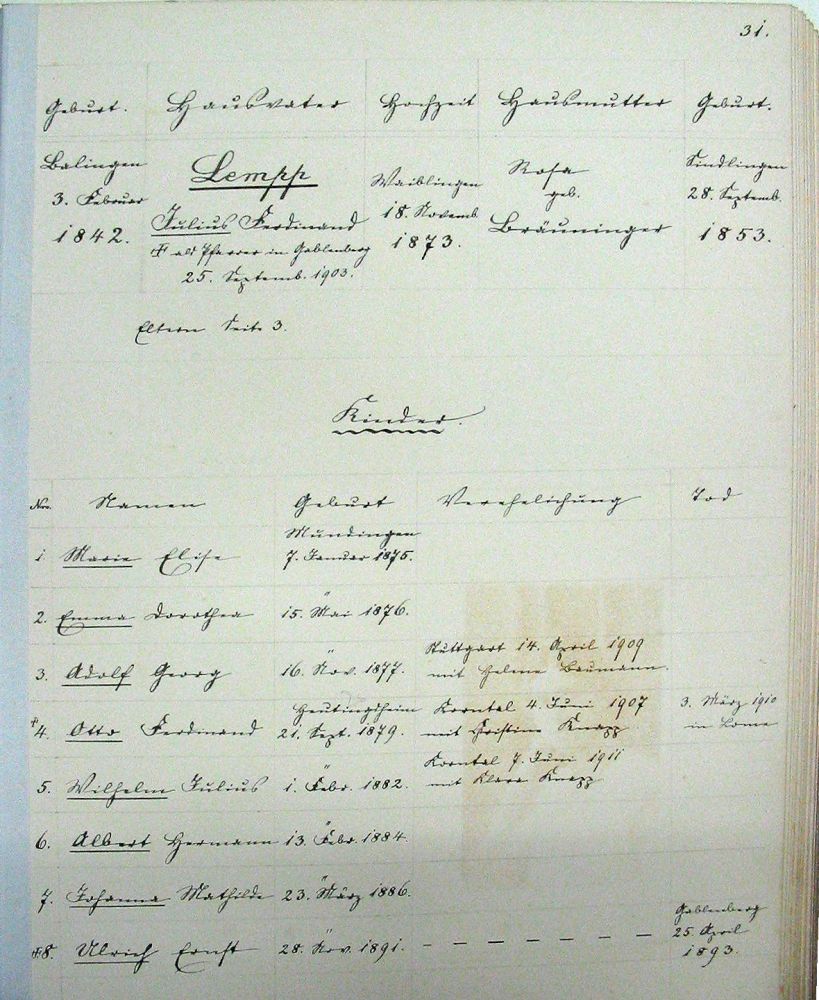 31.
Geburt. Hausvater Hochzeit Hausmutter Geburt.
Balingen
3. Februar
1842.
Lempp
Julius Ferdinand
✠ als Pfarrer in Gablenberg
25. Septemb. 1903.
Waiblingen
18. Novemb.
1873.
Rosa
geb.
Bräuninger
Sindlingen
28. Septemb.
1853.
Eltern Seite 3.
Kinder.
Nro. Namen Geburt Verehelichung Tod
Mundingen
1. Marie Elise 7. Januar 1875.
2. Emma Dorothea 15. " Mai 1876.
Stuttgart 14. April 1909
3. Adolf Georg 16. " Nov. 1877. mit Helene Baumann.
Heutingsheim Korntal 4. Juni 1907 3. März 1910
✠4. Otto Ferdinand 21. Sept. 1879. mit Christine Knapp in Lome
Korntal 7. Juni 1911
5. Wilhelm Julius 1. " Febr. 1882. mit Klara Knapp
6. Albert Hermann 13. " Febr. 1884.
7. Johanna Mathilde 23. " März 1886.
Gablenberg
✠8. Ulrich Ernst 28. " Nov. 1891. – – – – – – – – 25. April
1893.